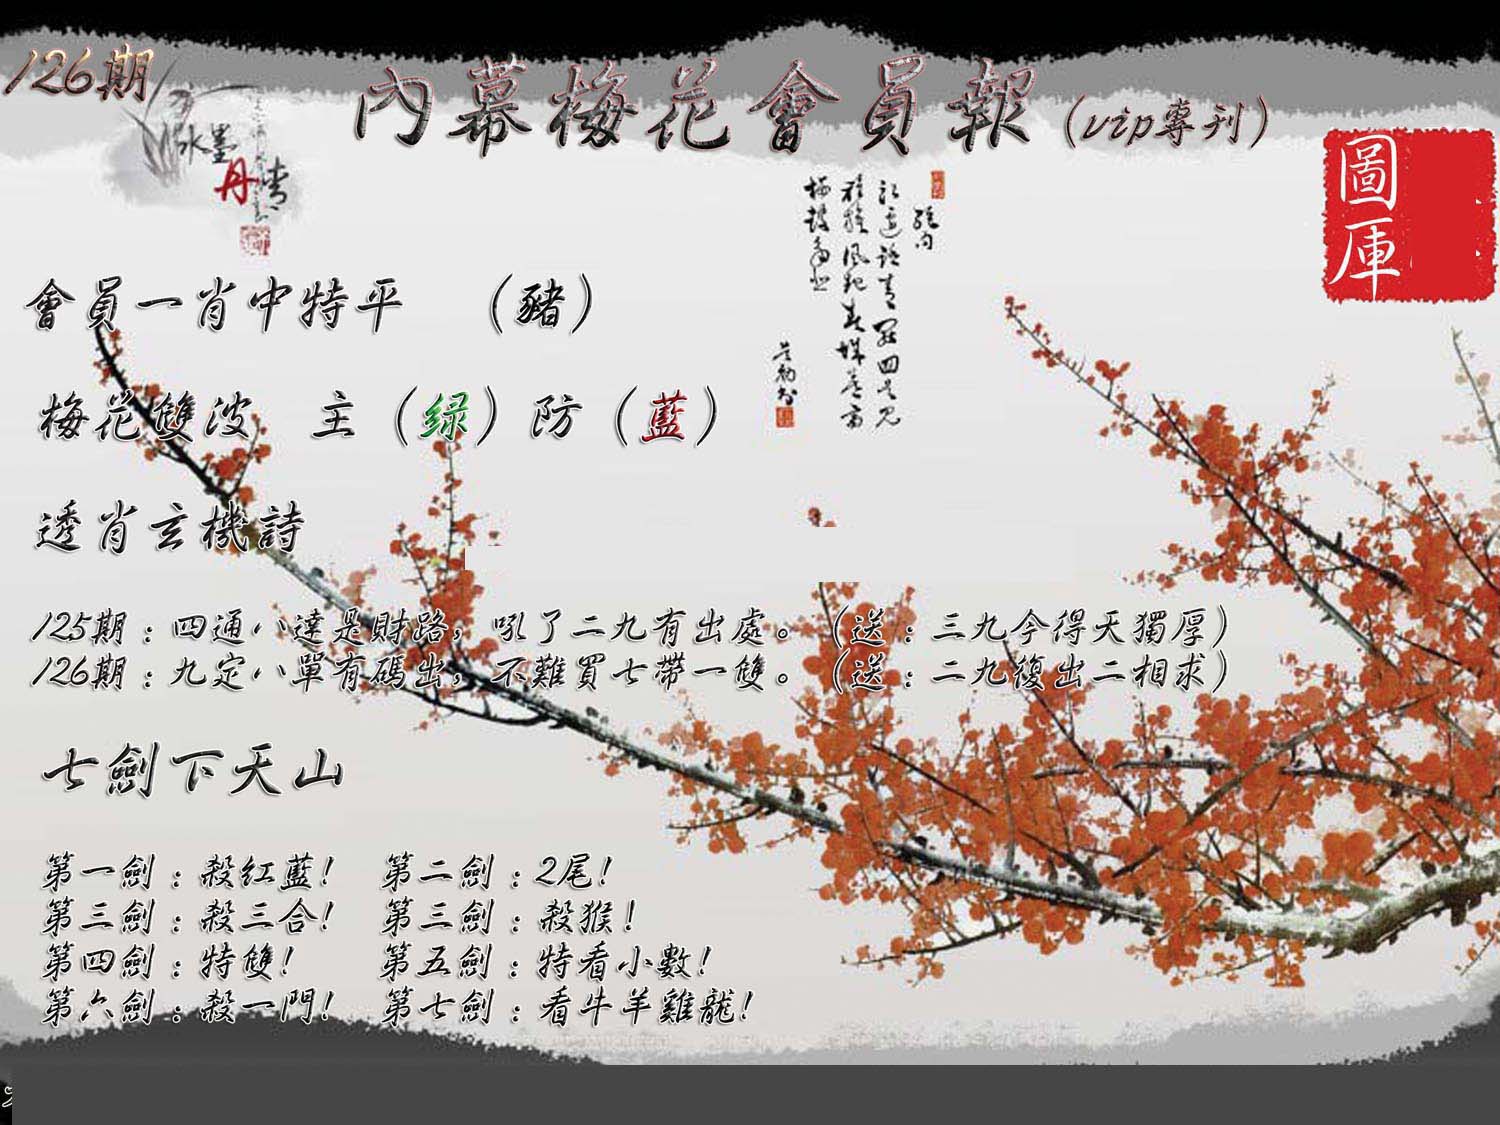 126期
內幕梅花會員報(vip專刊)
水墨
丹青
圖庫
會員一肖中特平 (豬)
梅花雙波 主(绿)防(藍)
透肖玄機詩
125期:四通八達是財路,吼了二九有出處。(送:三九今得天獨厚)
126期:九定八單有碼出,不難買七帶一雙。(送:二九復出二相求)
七劍下天山
第一劍:殺紅藍! 第二劍:2尾!
第三劍:殺三合! 第三劍:殺猴!
第四劍:特雙! 第五劍:特看小數!
第六劍:殺一門! 第七劍:看牛羊雞龍!